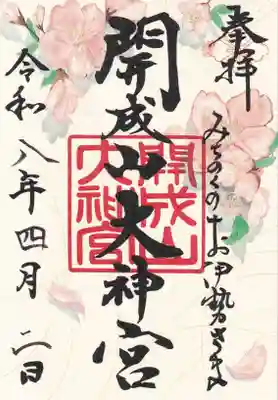 奉拝
みちのくのお伊勢さま
開成山大神宮
開成山
大神宮
令和八年四月二日